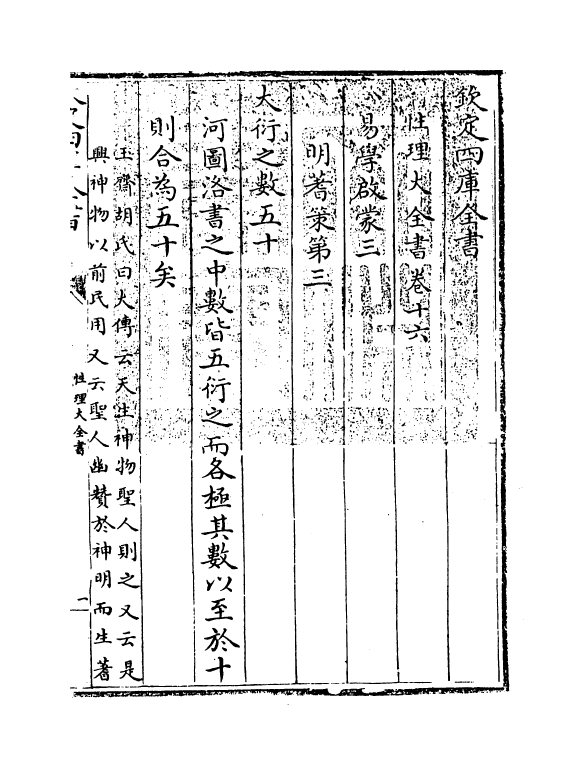 欽定四庫全書
性理大全書卷十六
易學啟蒙三
明蓍策第三
大衍之數五十
河圖洛書之中數皆五衍之而各極其數以至於十
則合為五十矣
玉齋胡氏曰大傳云天生神物聖人則之又云是
興神物以前民用又云聖人幽贊於神明而生蓍
性理大全書
一